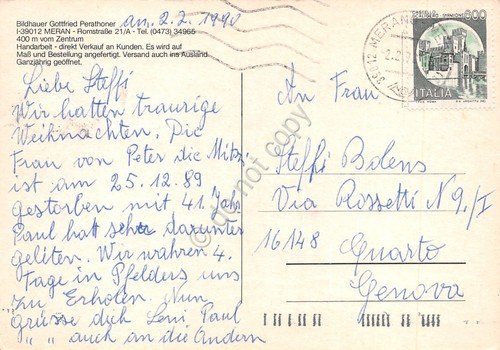 Bildhauer Gottfried Perathoner
I-39012 MERAN - Romstraße 21/A - Tel. (0473) 34965
400 m vom Zentrum
Handarbeit - direkt Verkauf an Kunden. Es wird auf
Maß und Bestellung angefertigt. Versand auch ins Ausland
Ganzjährig geöffnet.
am, 2.2.1990
Liebe Steffi
Wir hatten traurige
Weihnachten. Die
Frau von Peter die Mitzi
ist am 25.12.89
gestorben mit 41. Jahr
Paul hatt sehr darunter
geliten. Wir wahren 4.
Tage in Pfelders uns
zu Erholen. Nun
grüsse dich Leni Paul
" " auch an die Andern
39012 MERAN
600
ITALIA
An Frau
Steffi Bolens
Via Rossetti N 9/I
16148 Quarto
Genova
do not copy